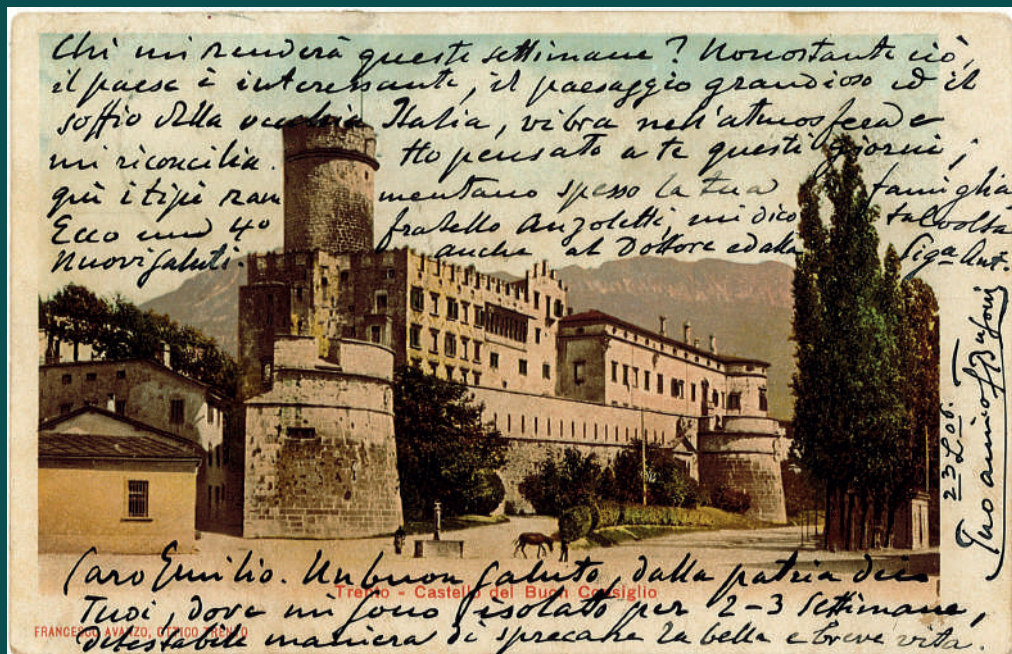 Chi mi renderà queste settimane? Nonostante ciò,
il paese è interessante, il paesaggio grandioso ed il
soffio della vecchia Italia, vibra nell'atmosfera e
mi riconcilia. Ho pensato a te questi giorni;
qui i tipi rammentano spesso la tua famiglia
Ecco un 4º fratello Anzoletti, mi dico talvolta
Nuovi saluti. anche al Dottore ed alla Sigª Ant.
23 L 06.
Tuo amico FBusoni
Caro Emilio. Un buon saluto, dalla patria dei
Tuoi, dove mi sono isolato per 2-3 settimane,
detestabile maniera di sprecare la bella e breve vita.
Trento - Castello del Buon Consiglio
FRANCESCO AVANZO, OTTICO TRENTO